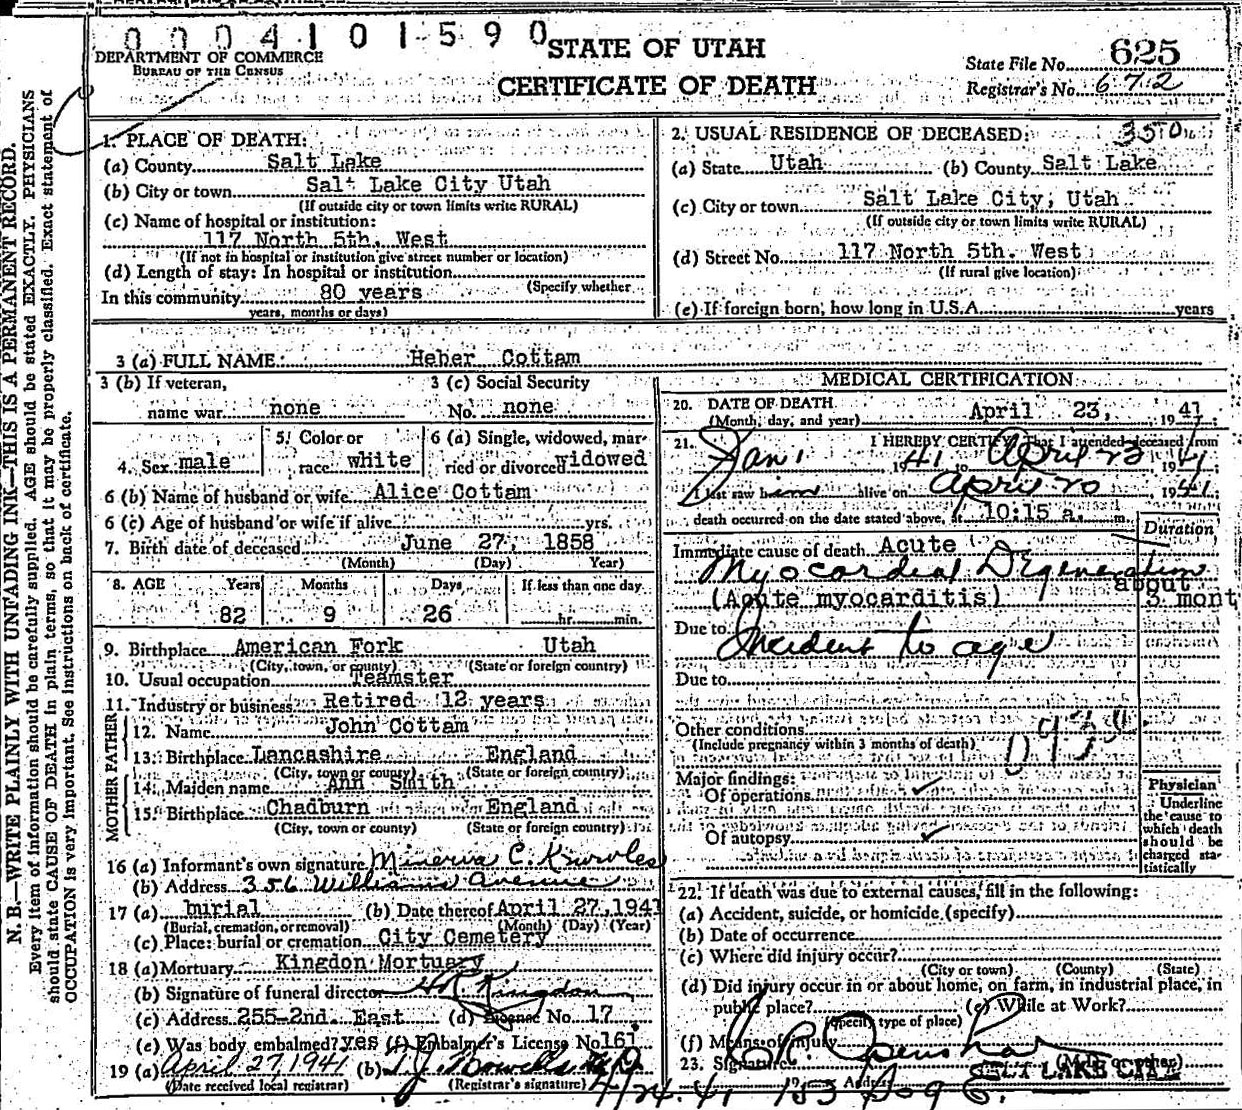 0004101590
DEPARTMENT OF COMMERCE
BUREAU OF THE CENSUS
STATE OF UTAH
CERTIFICATE OF DEATH
State File No. 625
Registrar's No. 672
N. B.—WRITE PLAINLY WITH UNFADING INK—THIS IS A PERMANENT RECORD.
Every item of information should be carefully supplied. AGE should be stated EXACTLY. PHYSICIANS
should state CAUSE OF DEATH in plain terms, so that it may be properly classified. Exact statement of
OCCUPATION is very important. See instructions on back of certificate.
1. PLACE OF DEATH:
(a) County Salt Lake
(b) City or town Salt Lake City Utah
(If outside city or town limits write RURAL)
(c) Name of hospital or institution:
117 North 5th. West
(If not in hospital or institution give street number or location)
(d) Length of stay: In hospital or institution
(Specify whether
In this community 80 years
years, months or days)
2. USUAL RESIDENCE OF DECEASED: 350
(a) State Utah (b) County Salt Lake
(c) City or town Salt Lake City, Utah
(If outside city or town limits write RURAL)
(d) Street No. 117 North 5th. West
(If rural give location)
(e) If foreign born, how long in U.S.A. years
3 (a) FULL NAME: Heber Cottam
3 (b) If veteran,
name war none
3 (c) Social Security
No. none
4. Sex male
5. Color or
race white
6 (a) Single, widowed, mar-
ried or divorced widowed
6 (b) Name of husband or wife Alice Cottam
6 (c) Age of husband or wife if alive yrs.
7. Birth date of deceased June 27, 1858
(Month) (Day) Year)
8. AGE Years Months Days If less than one day
82 9 26 hr. min.
9. Birthplace American Fork Utah
(City, town, or county) (State or foreign country)
10. Usual occupation Teamster
11. Industry or business Retired 12 years
FATHER
12. Name John Cottam
13. Birthplace Lancashire England
(City, town or county) (State or foreign country)
MOTHER
14. Maiden name Ann Smith
15. Birthplace Chadburn England
(City, town or county) (State or foreign country)
16 (a) Informant's own signature Minerva C. Knowles
(b) Address 356 Williams Avenue
17 (a) burial (b) Date thereof April 27, 1941
(Burial, cremation, or removal) (Month) (Day) (Year)
(c) Place: burial or cremation City Cemetery
18 (a) Mortuary Kingdon Mortuary
(b) Signature of funeral director Kingdon
(c) Address 255-2nd. East (d) License No. 17
(e) Was body embalmed? yes (f) Embalmer's License No. 161
19 (a) April 27 1941 (b)
(Date received local registrar) (Registrar's signature)
MEDICAL CERTIFICATION
20. DATE OF DEATH April 23, 1941
(Month, day, and year)
21. I HEREBY CERTIFY That I attended deceased from
Jan. 1941 to April 23 1941
I last saw him alive on April 20, 1941
death occurred on the date stated above, at 10:15 a. m.
Duration
Immediate cause of death Acute
Myocardial Degeneration
(Acute myocarditis) about
3 mont
Due to Incident to age
Due to
Other conditions
(Include pregnancy within 3 months of death)
Major findings:
Of operations
Of autopsy
Physician
Underline
the cause to
which death
should be
charged sta-
tistically
22. If death was due to external causes, fill in the following:
(a) Accident, suicide, or homicide (specify)
(b) Date of occurrence
(c) Where did injury occur?
(City or town) (County) (State)
(d) Did injury occur in or about home, on farm, in industrial place, in
public place? (e) While at Work?
(Specify type of place)
(f) Means of injury
23. Signature C. R. Openshaw (M.D. or other)
SALT LAKE CITY
4/24.41 Address